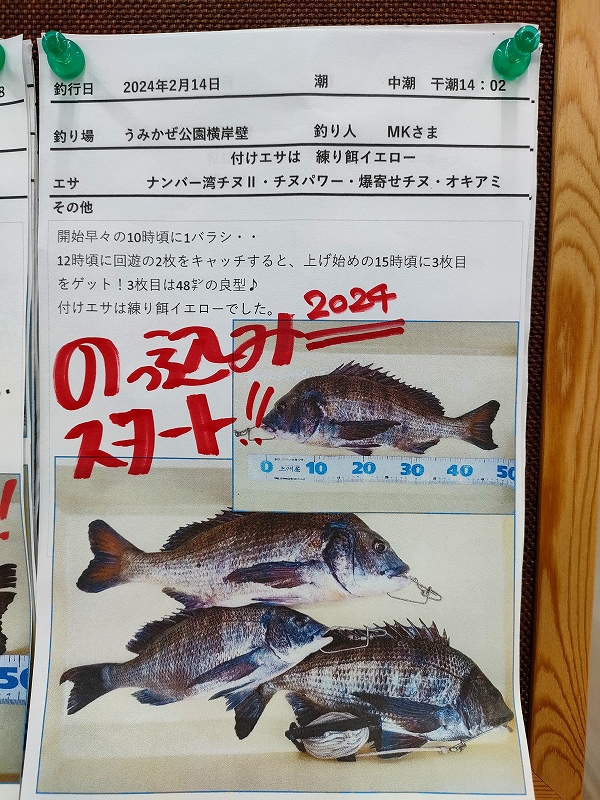 8
釣行日 2024年2月14日 潮 中潮 干潮14：02
釣り場 うみかぜ公園横岸壁 釣り人 MKさま
付けエサは 練り餌イエロー
エサ ナンバー湾チヌⅡ・チヌパワー・爆寄せチヌ・オキアミ
その他
開始早々の10時頃に1バラシ・・
12時頃に回遊の2枚をキャッチすると、上げ始めの15時頃に3枚目
をゲット！3枚目は48㌢の良型♪
付けエサは練り餌イエローでした。
2024
のっ込み
スタート!!
0 上州屋 10 20 30 40 50
!
50